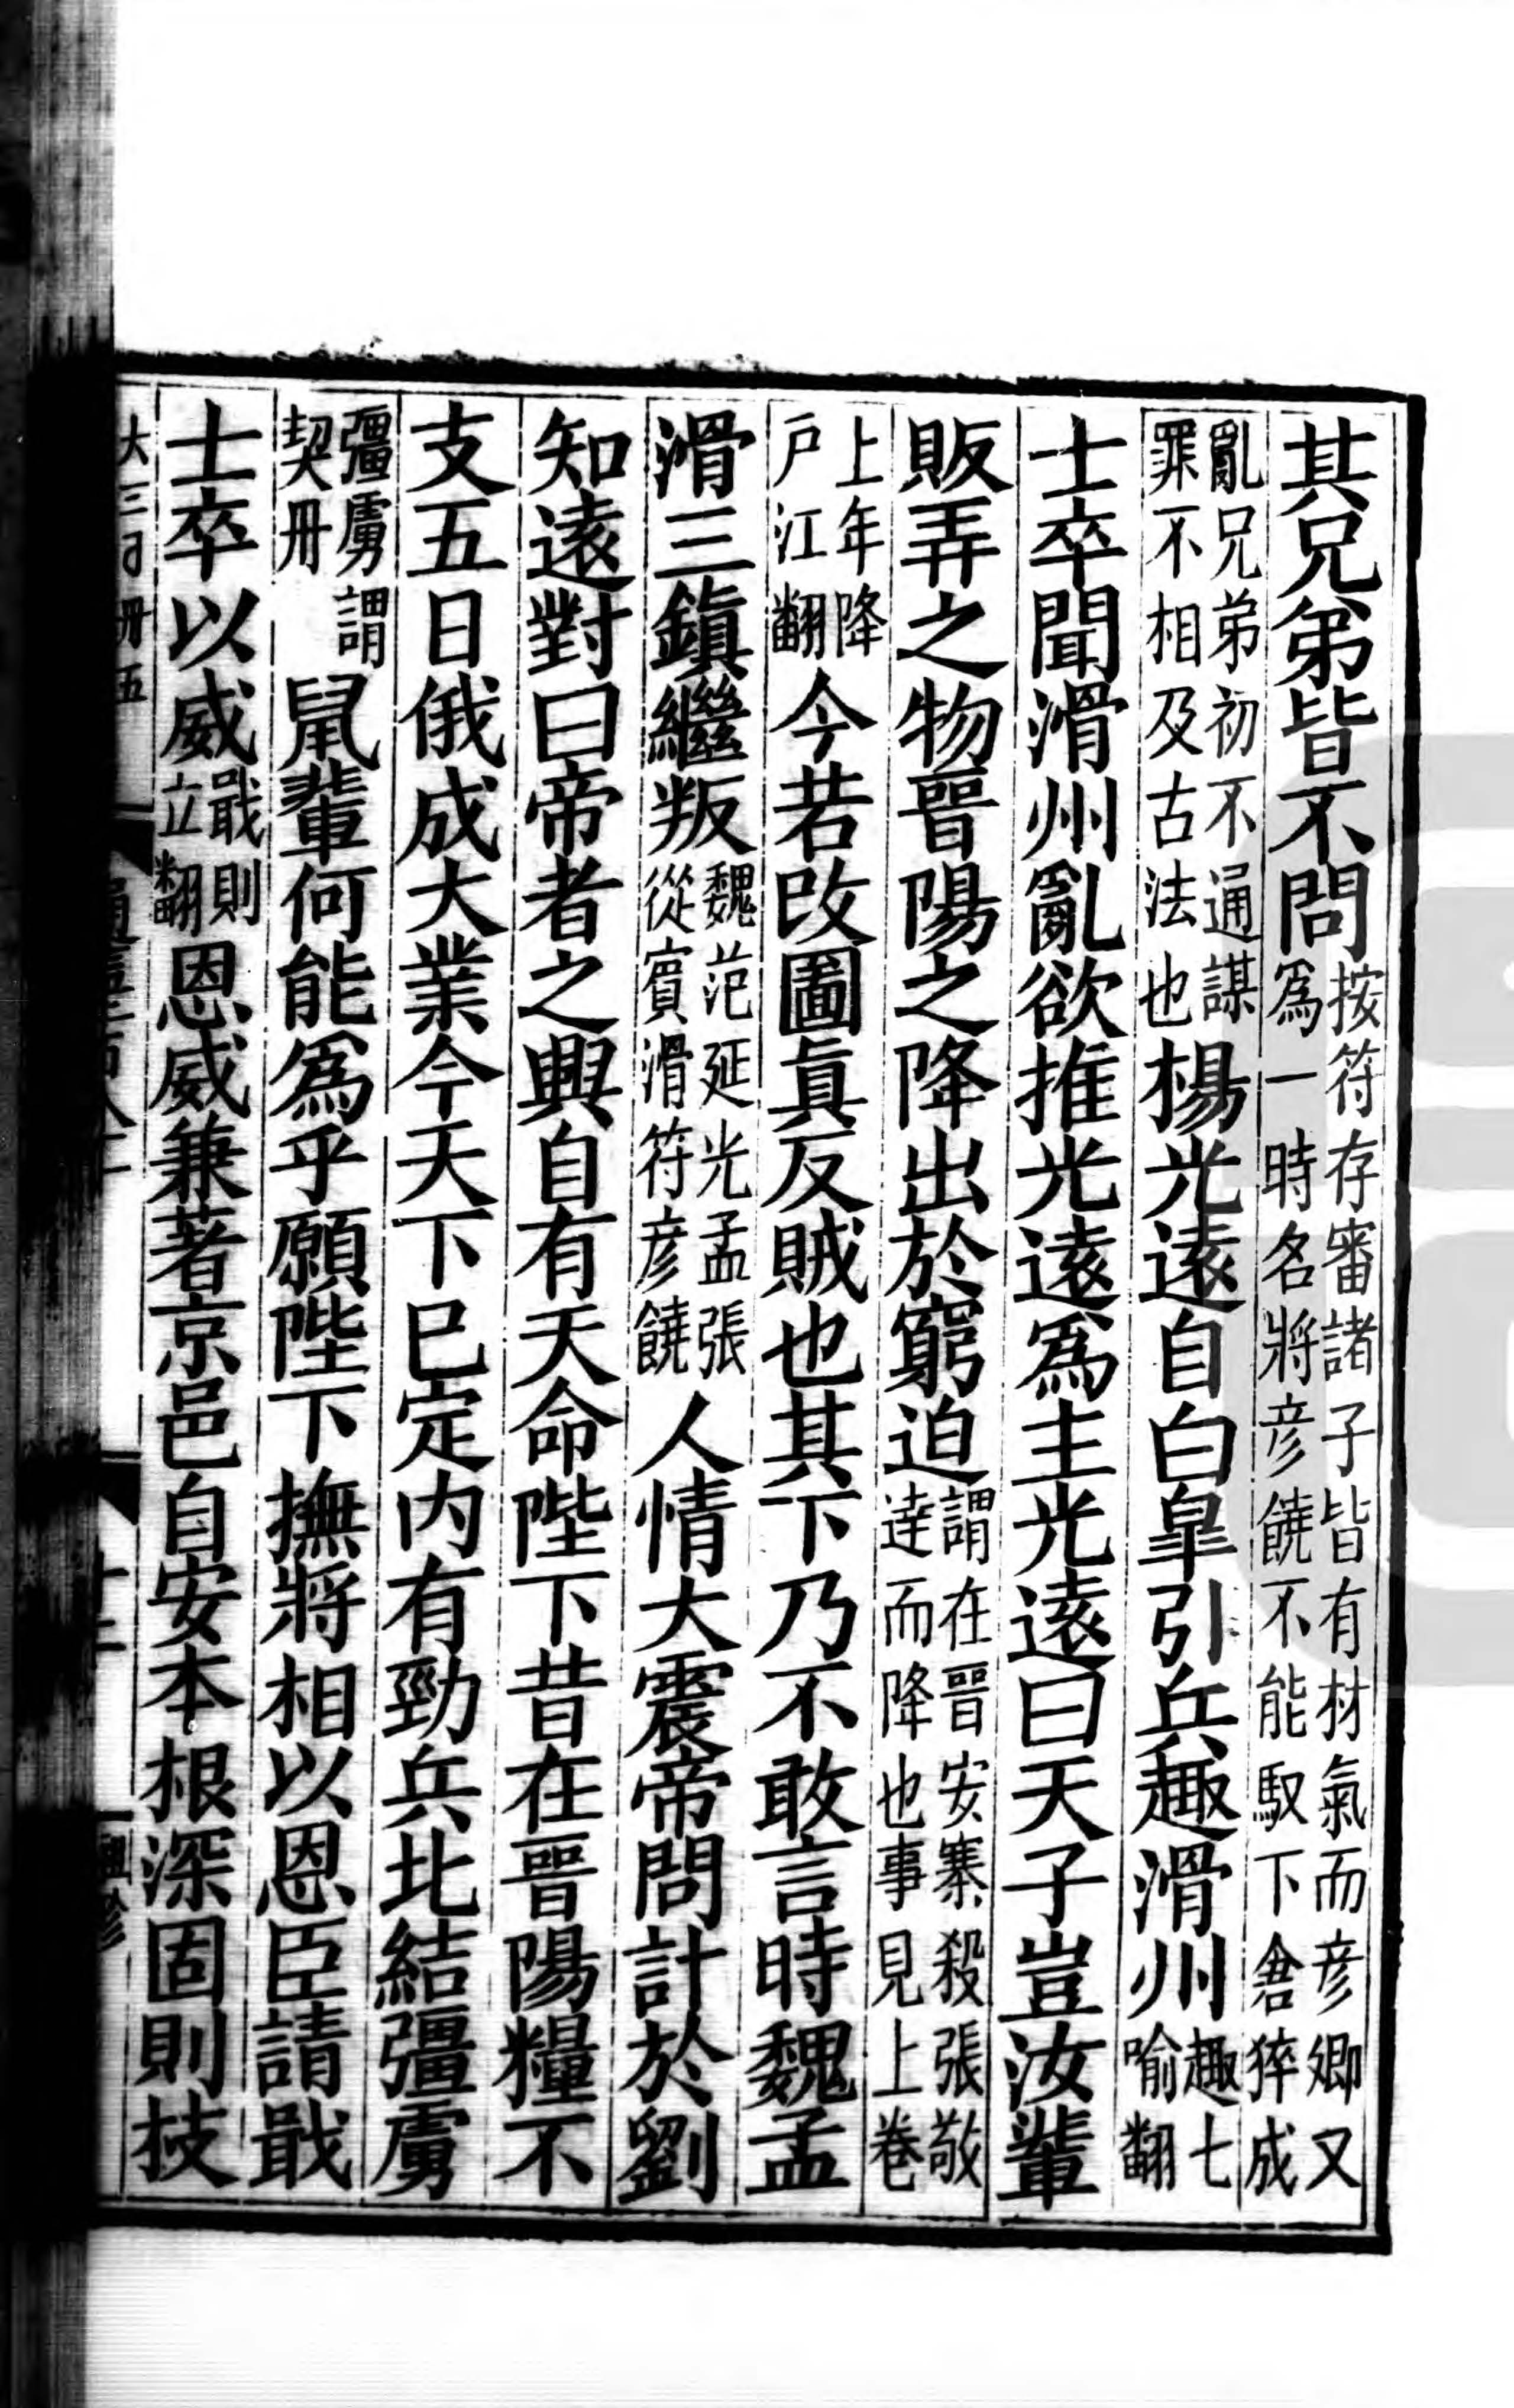 其兄弟皆不問按符存審諸子皆有材氣而彦卿又爲一時名將彦饒不能馭下倉猝成
亂兄弟初不通謀罪不相及古法也楊光遠自白皐引兵趣滑州趣七喻翻
士卒聞滑州亂欲推光遠爲主光遠曰天子豈汝輩
販弄之物晉陽之降出於窮迫謂在晉安寨殺張敬逹而降也事見上卷
上年降户江翻今若改圖眞反賊也其下乃不敢言時魏孟
滑三鎮繼叛魏范延光孟張從賓滑符彦饒人情大震帝問計於劉
知遠對曰帝者之興自有天命陛下昔在晉陽糧不
支五日俄成大業今天下已定内有勁兵北結彊虜
彊虜謂契丹鼠輩何能爲乎願陛下撫將相以恩臣請戢
士卒以威戢則立翻恩威兼著京邑自安本根深固則枝